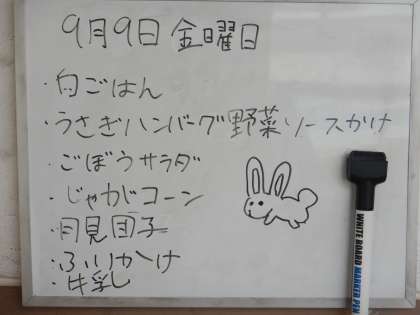 9月9日 金曜日
・白ごはん
・うさぎハンバーグ野菜ソースかけ
・ごぼうサラダ
・じゃがコーン
・月見団子
・ふりかけ
・牛乳
WHITE BOARD MARKER PEN